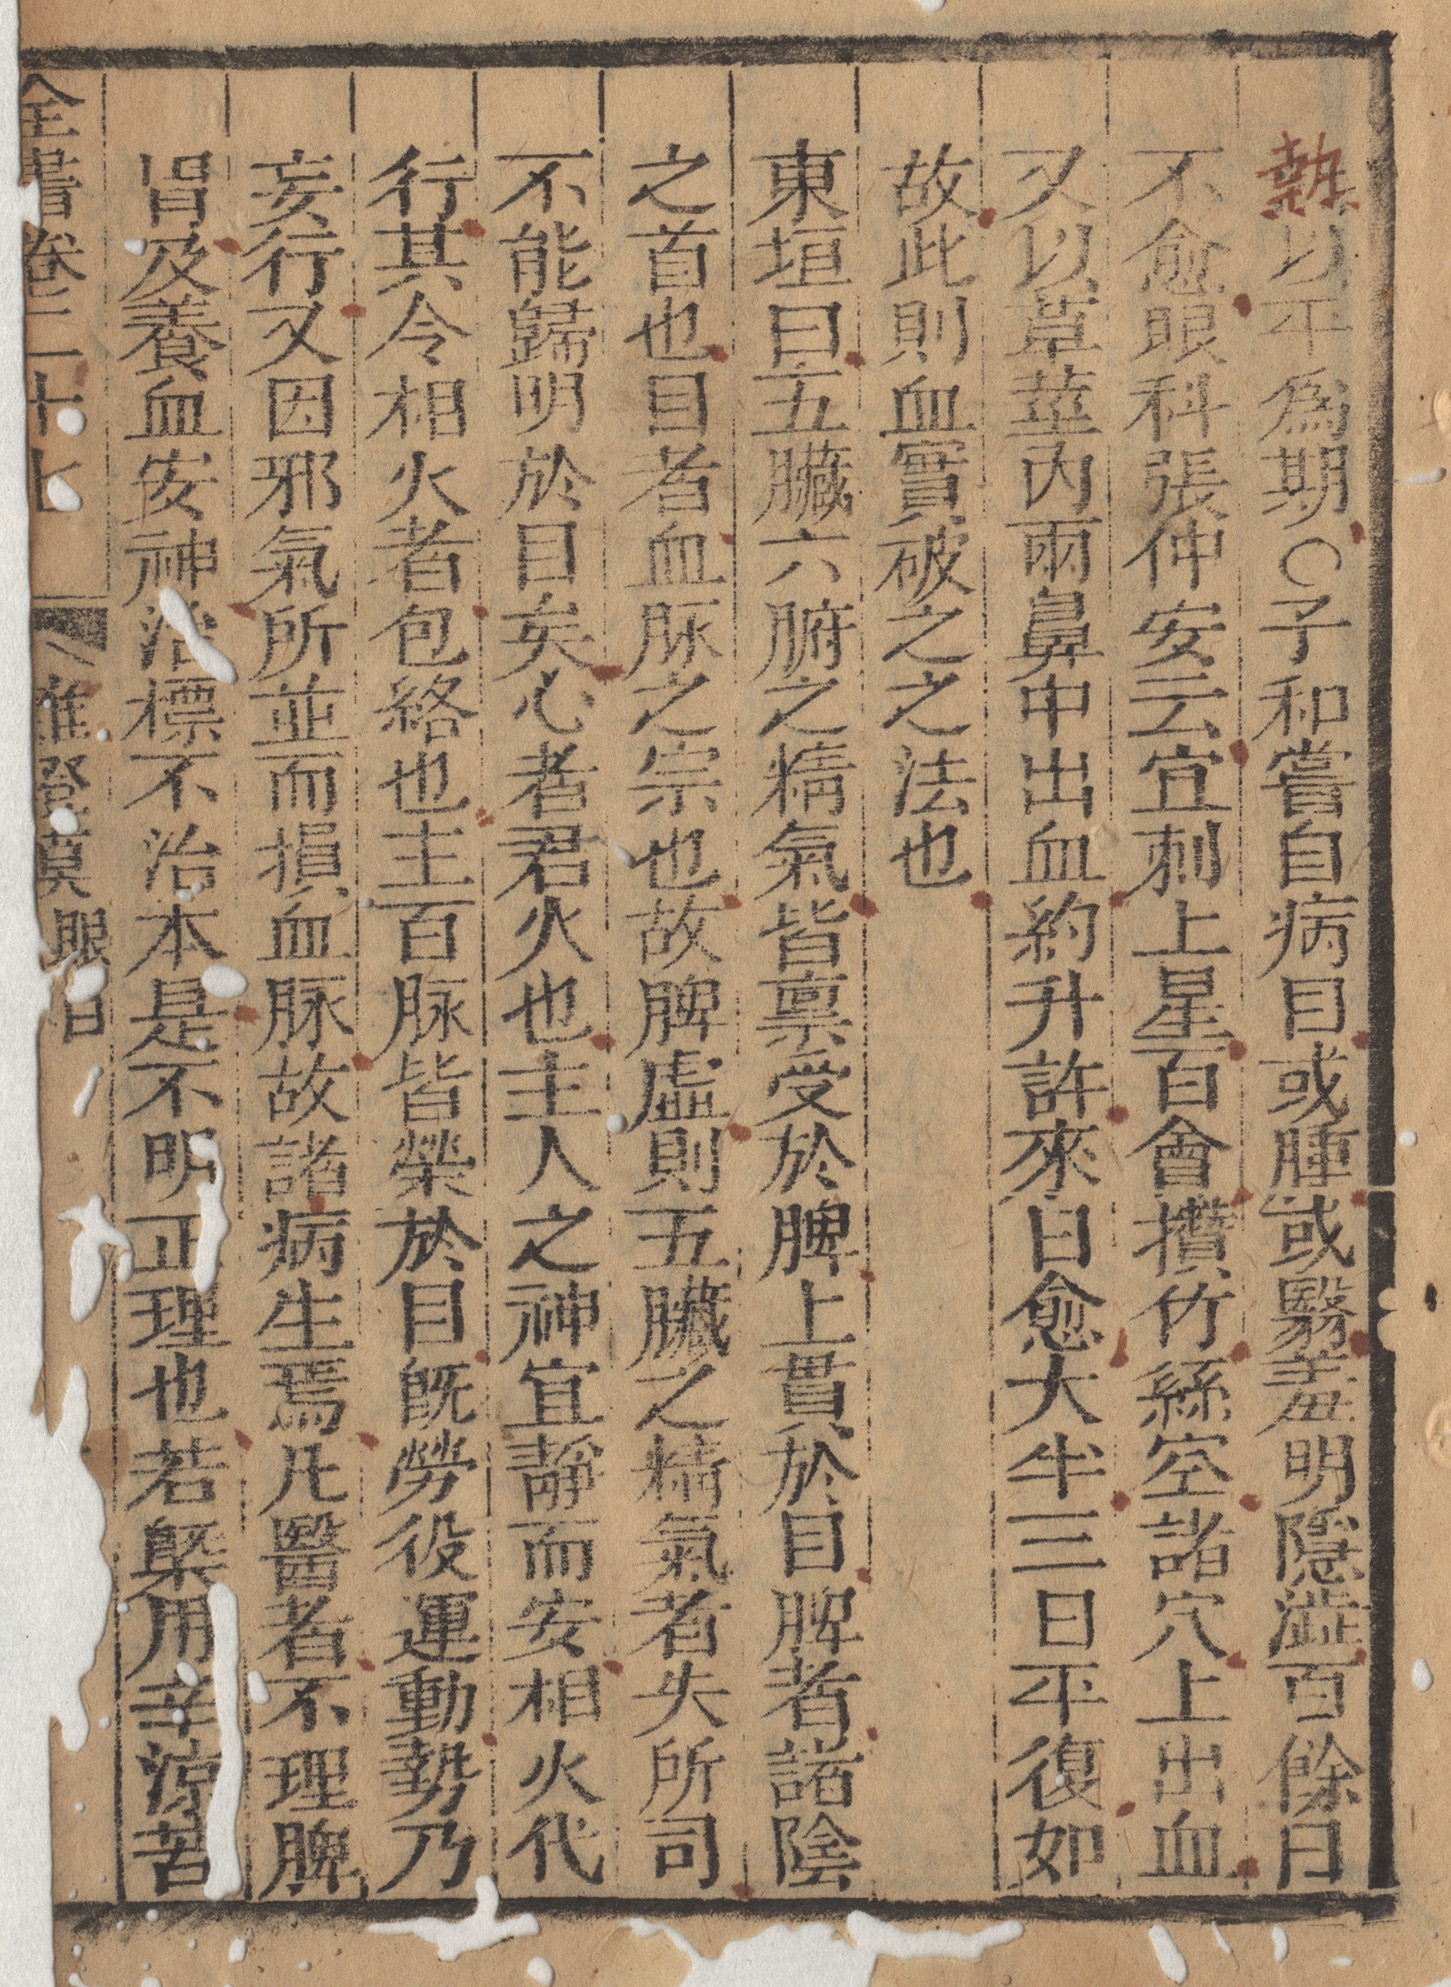 熱以平爲期○子和嘗自病目或腫或翳羞明隱澁百餘日
不愈眼科張仲安云宜刺上星百會攢竹絲空諸穴上出血
又以草莖內兩鼻中出血約升許來日愈大半三日平復如
故此則血實破之之法也
東垣曰五臟六腑之精氣皆禀受於脾上貫於目脾者諸陰
之首也目者血脉之宗也故脾虛則五臟之精氣者失所司
不能歸明於目矣心者君火也主人之神宜靜而安相火代
行其令相火者包絡也主百脉皆榮於目旣勞役運動勢乃
妄行又因邪氣所並而損血脉故諸病生焉凡醫者不理脾
胃及養血安神治標不治本是不明正理也若槩用辛涼苦
全書卷二十七 雜證謨 眼目